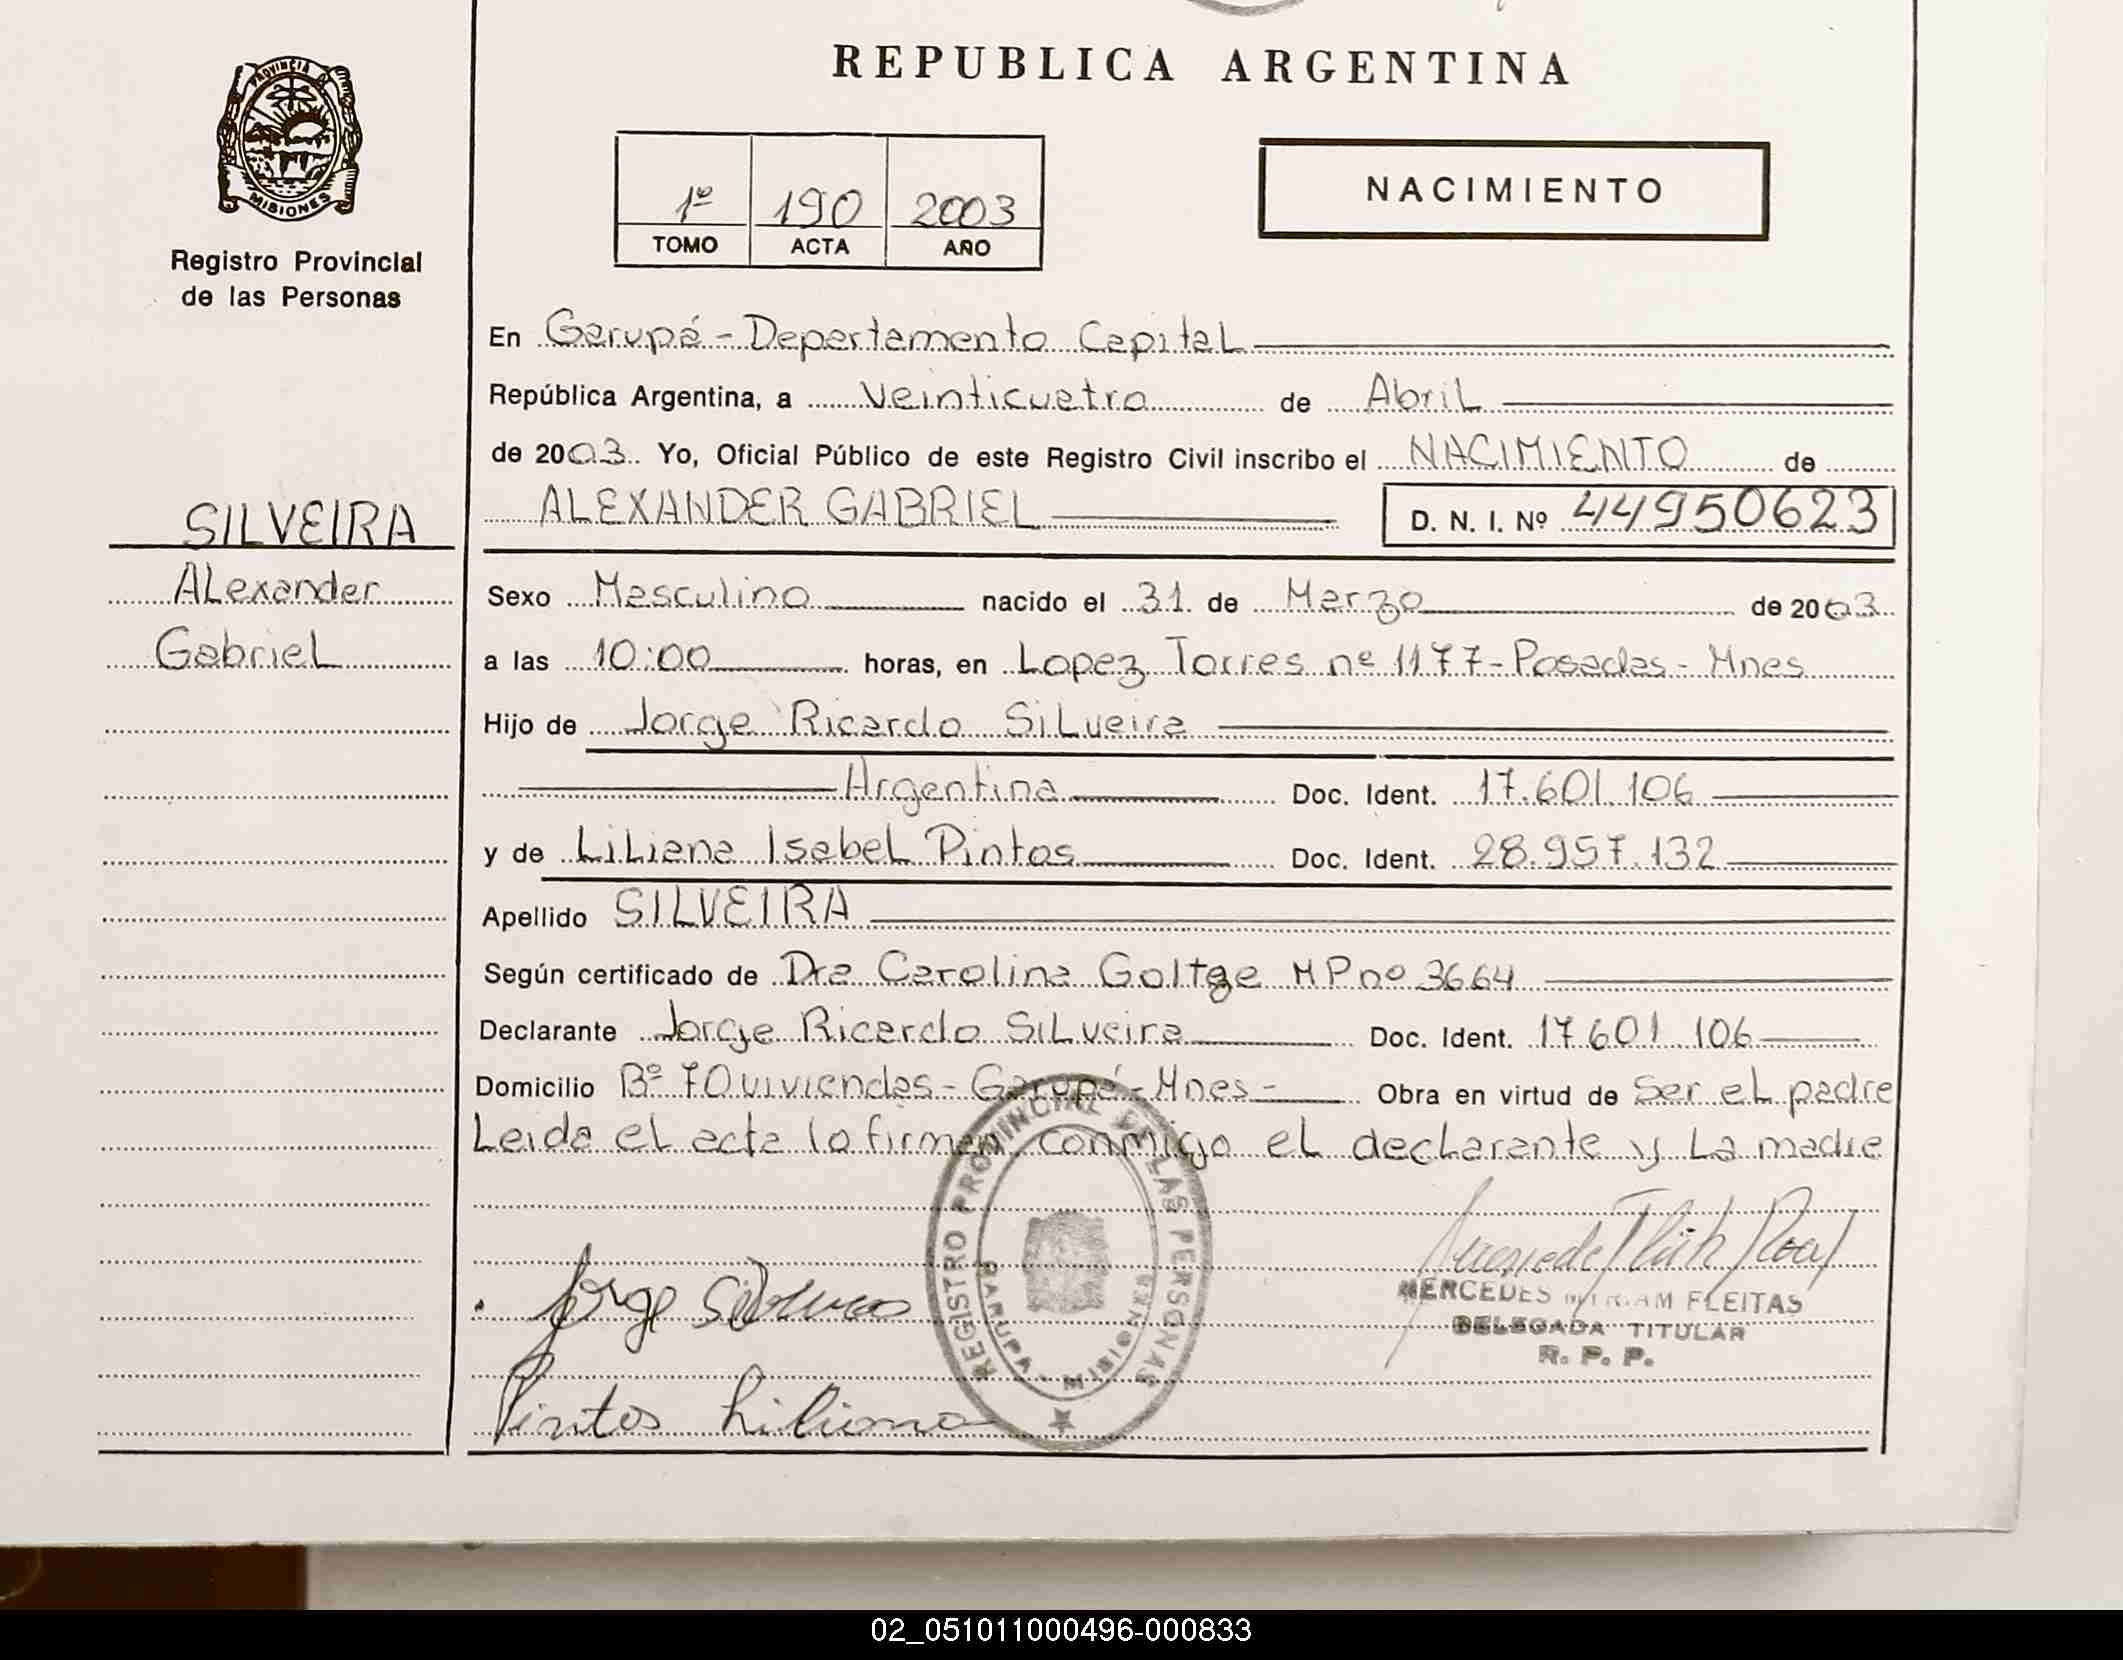 REPUBLICA ARGENTINA
PROVINCIA DE
MISIONES
Registro Provincial
de las Personas
1º 190 2003
TOMO ACTA AÑO
NACIMIENTO
En Garupá - Departamento Capital
República Argentina, a Veinticuatro de Abril
de 2003. Yo, Oficial Público de este Registro Civil inscribo el NACIMIENTO de
ALEXANDER GABRIEL D. N. I. Nº 44950623
SILVEIRA
Alexander
Gabriel
Sexo Masculino nacido el 31 de Marzo de 2003
a las 10:00 horas, en Lopez Torres nº 1177 - Posadas - Mnes
Hijo de Jorge Ricardo Silveira
Argentina Doc. Ident. 17.601.106
y de Liliana Isabel Pintos Doc. Ident. 28.957.132
Apellido SILVEIRA
Según certificado de Dra Carolina Goltge MP nº 3664
Declarante Jorge Ricardo Silveira Doc. Ident. 17.601.106
Domicilio Bº 70 viviendas - Garupá - Mnes - Obra en virtud de Ser el padre
Leida el acta la firman conmigo el declarante y La madre
REGISTRO PROVINCIAL DE LAS PERSONAS
GARUPA - MISIONES
Jorge Silveira
Pintos Liliana
MERCEDES MIRIAM FLEITAS
DELEGADA TITULAR
R. P. P.
02_051011000496-000833